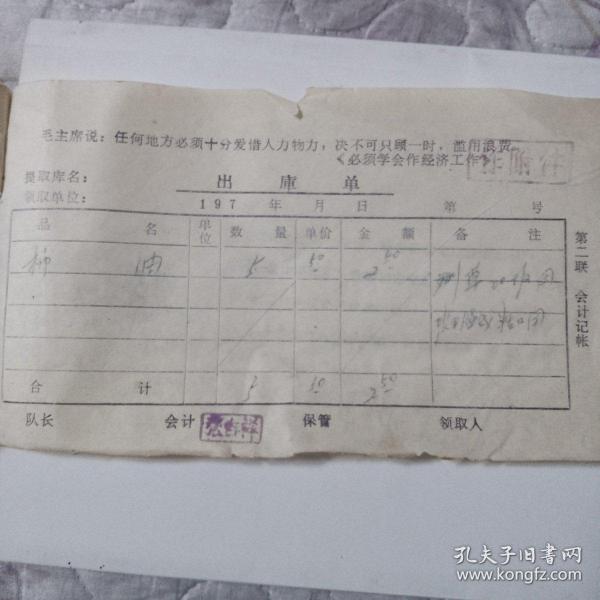 毛主席说：任何地方必须十分爱惜人力物力，决不可只顾一时，滥用浪费。
《必须学会作经济工作》
提取库名：
出 库 单
领取单位：
197 年 月 日 第 号
品 名 单位 数 量 单价 金 额 备 注
油 5 50 2 50
合 计 5 50 2 50
队长 会计 保管 领取人
第二联 会计记帐
孔夫子旧书网
www.kongfz.com